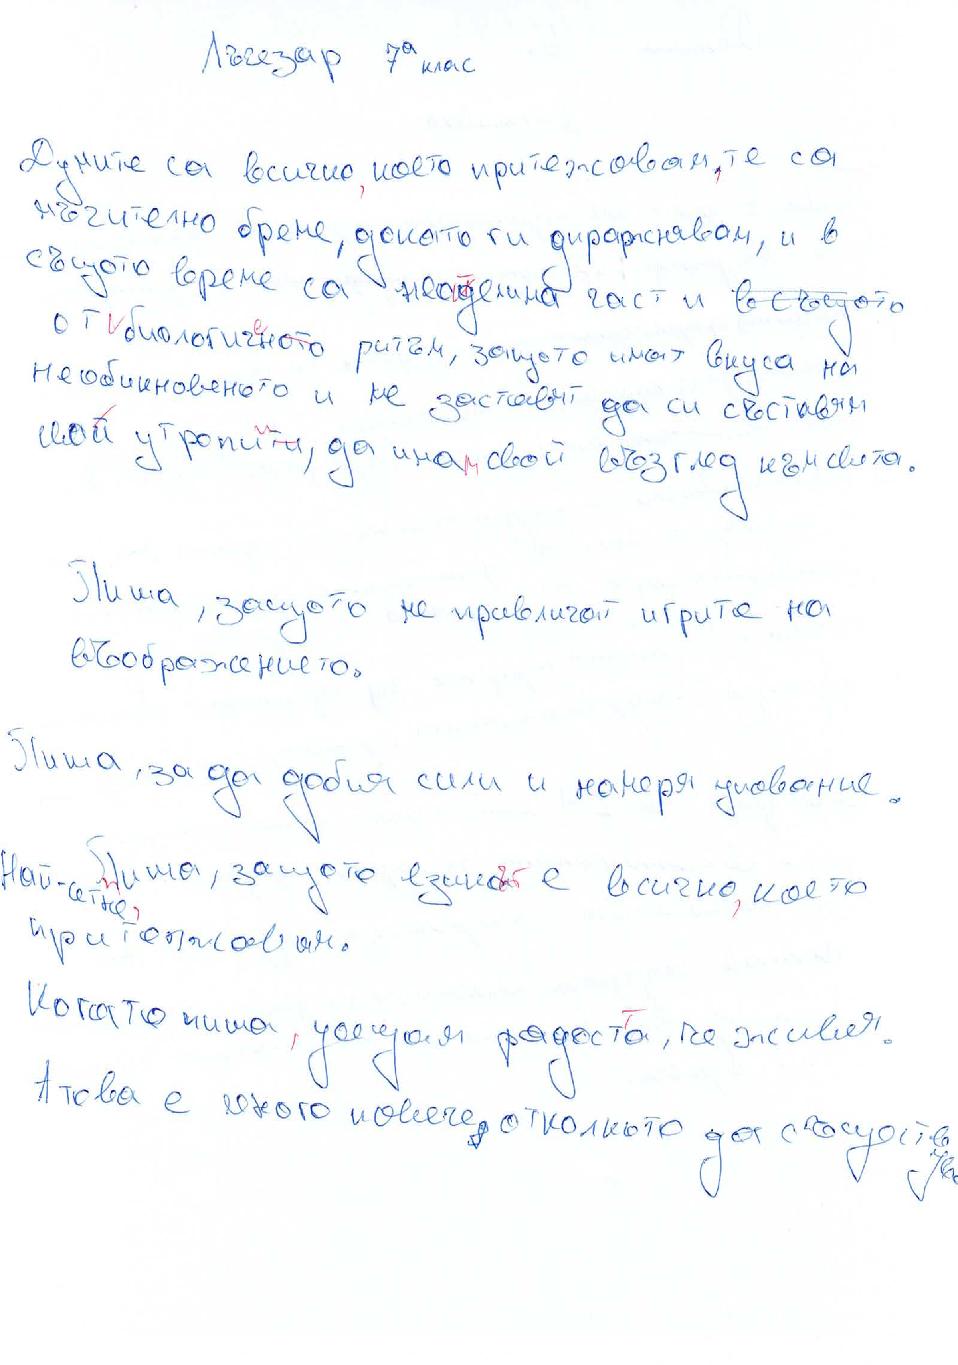 Лъчезар 7а клас
Думите са всичко, което притежавам, те са
мъчително бреме, докато ги дираржнявам, и в
същото време са неотделима част и в същото
от биологичното ритъм, защото имат вкуса на
необикновеното и ме заставят да си съставям
мой утопии, да имам свой възглед към света.
Пиша, защото ме привличат игрите на
въображението.
Пиша, за да добия сили и намеря упование.
Най-сетне, пиша, защото езикът е всичко, което
притежавам.
Когато пиша, усещам радостта, че живея.
А това е много повече, отколкото да съществ
ува